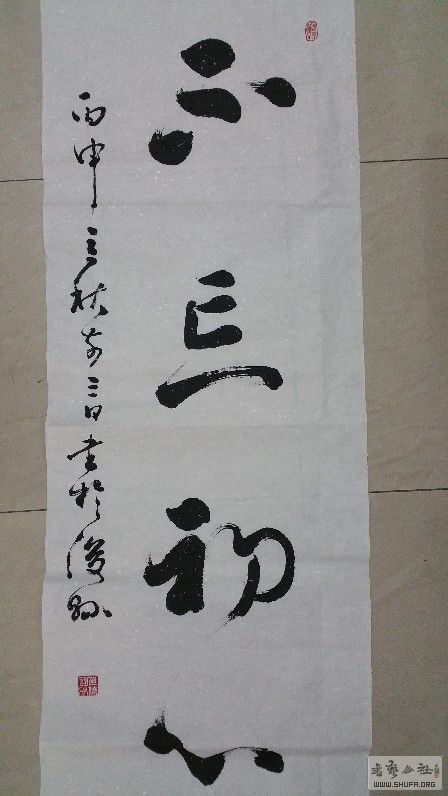 不忘初心
丙申立秋前三日书于浚县
书艺公社
WWW.SHUFA.ORG